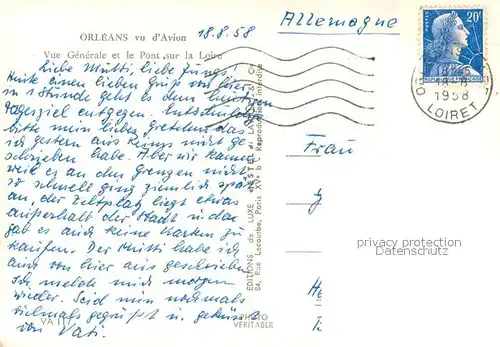 ORLÉANS vu d'Avion
18.8.58
Allemagne
Vue Générale et le Pont sur la Loire
Liebe Mutti, liebe Jungs!
Heute einen lieben Gruß von hier
in 1 Stunde geht es dem
Tagesziel entgegen.
bitte mein liebes Gretchen das
ich gestern aus nicht ge-
schrieben habe. Aber wir kamen
weil es an den Grenzen nicht
so schnell ging ziemlich spät
an, der Zeltplatz liegt etwas
außerhalb der Stadt u. da
gab es auch keine Karten zu
kaufen. Der Mutti habe ich
auch von hier aus geschrieben
Ich melde mich morgen
wieder. Seid nun nochmals
vielmals gegrüßt u. geküsst
von Vati.
VA 117
PHOTO
VERITABLE
EDITIONS de LUXE
84, Rue Lecourbe, Paris XVe
Reproduction interdite
Frau
20F
18-8
1958
LOIRET
privacy protection
Datenschutz